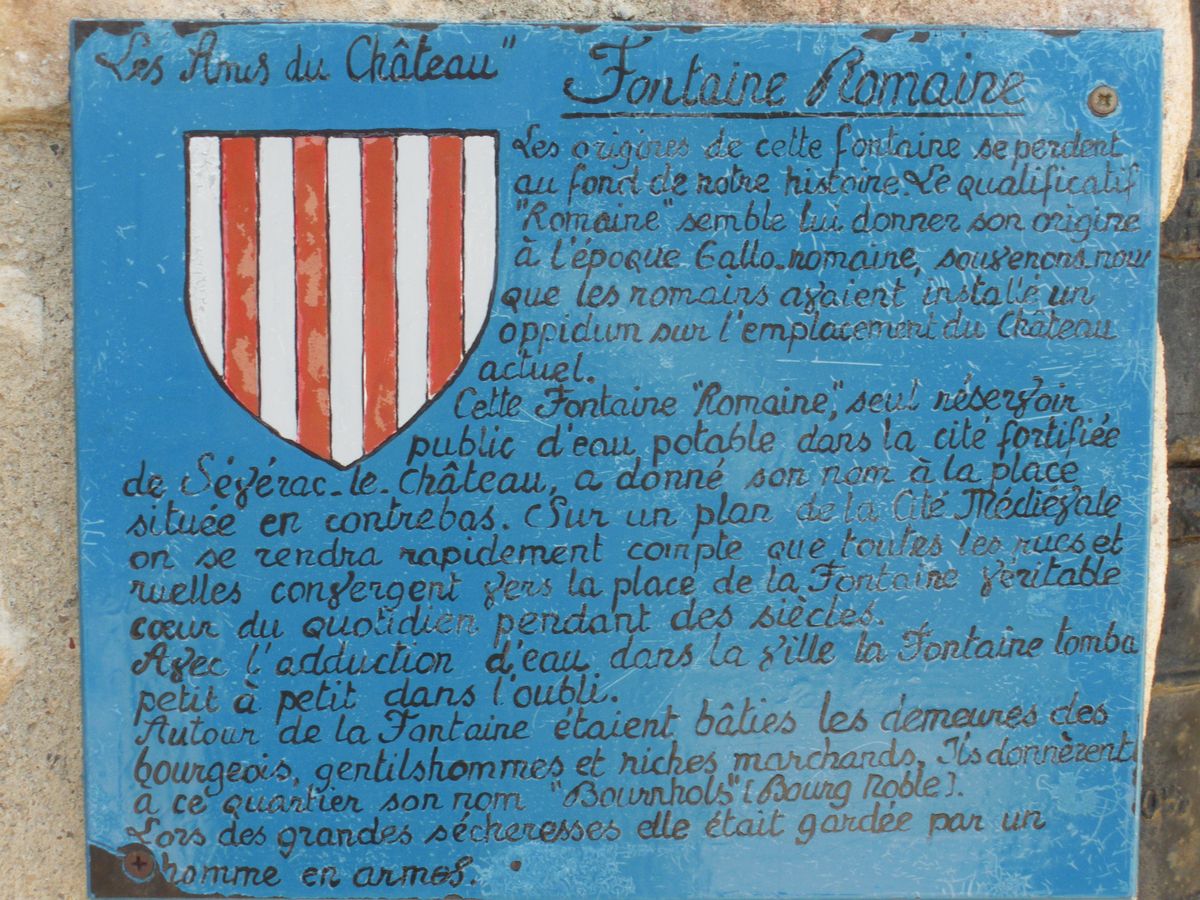 Les Amis du Château"
Fontaine Romaine
Les origines de cette fontaine se perdent
au fond de notre histoire. Le qualificatif
"Romaine" semble lui donner son origine
à l'époque Gallo-romaine, souvenons-nous
que les romains avaient installé un
oppidum sur l'emplacement du Château
actuel.
Cette Fontaine "Romaine", seul réservoir
public d'eau potable dans la cité fortifiée
de Sévérac-le-Château, a donné son nom à la place
située en contrebas. Sur un plan de la Cité Médiévale
on se rendra rapidement compte que toutes les rues et
ruelles convergent vers la place de la Fontaine véritable
cœur du quotidien pendant des siècles.
Avec l'adduction d'eau dans la ville la Fontaine tomba
petit à petit dans l'oubli.
Autour de la Fontaine étaient bâties les demeures des
bourgeois, gentilshommes et riches marchands. Ils donnèrent
a ce quartier son nom "Bournhols" [Bourg Noble].
Lors des grandes sécheresses elle était gardée par un
homme en armes.